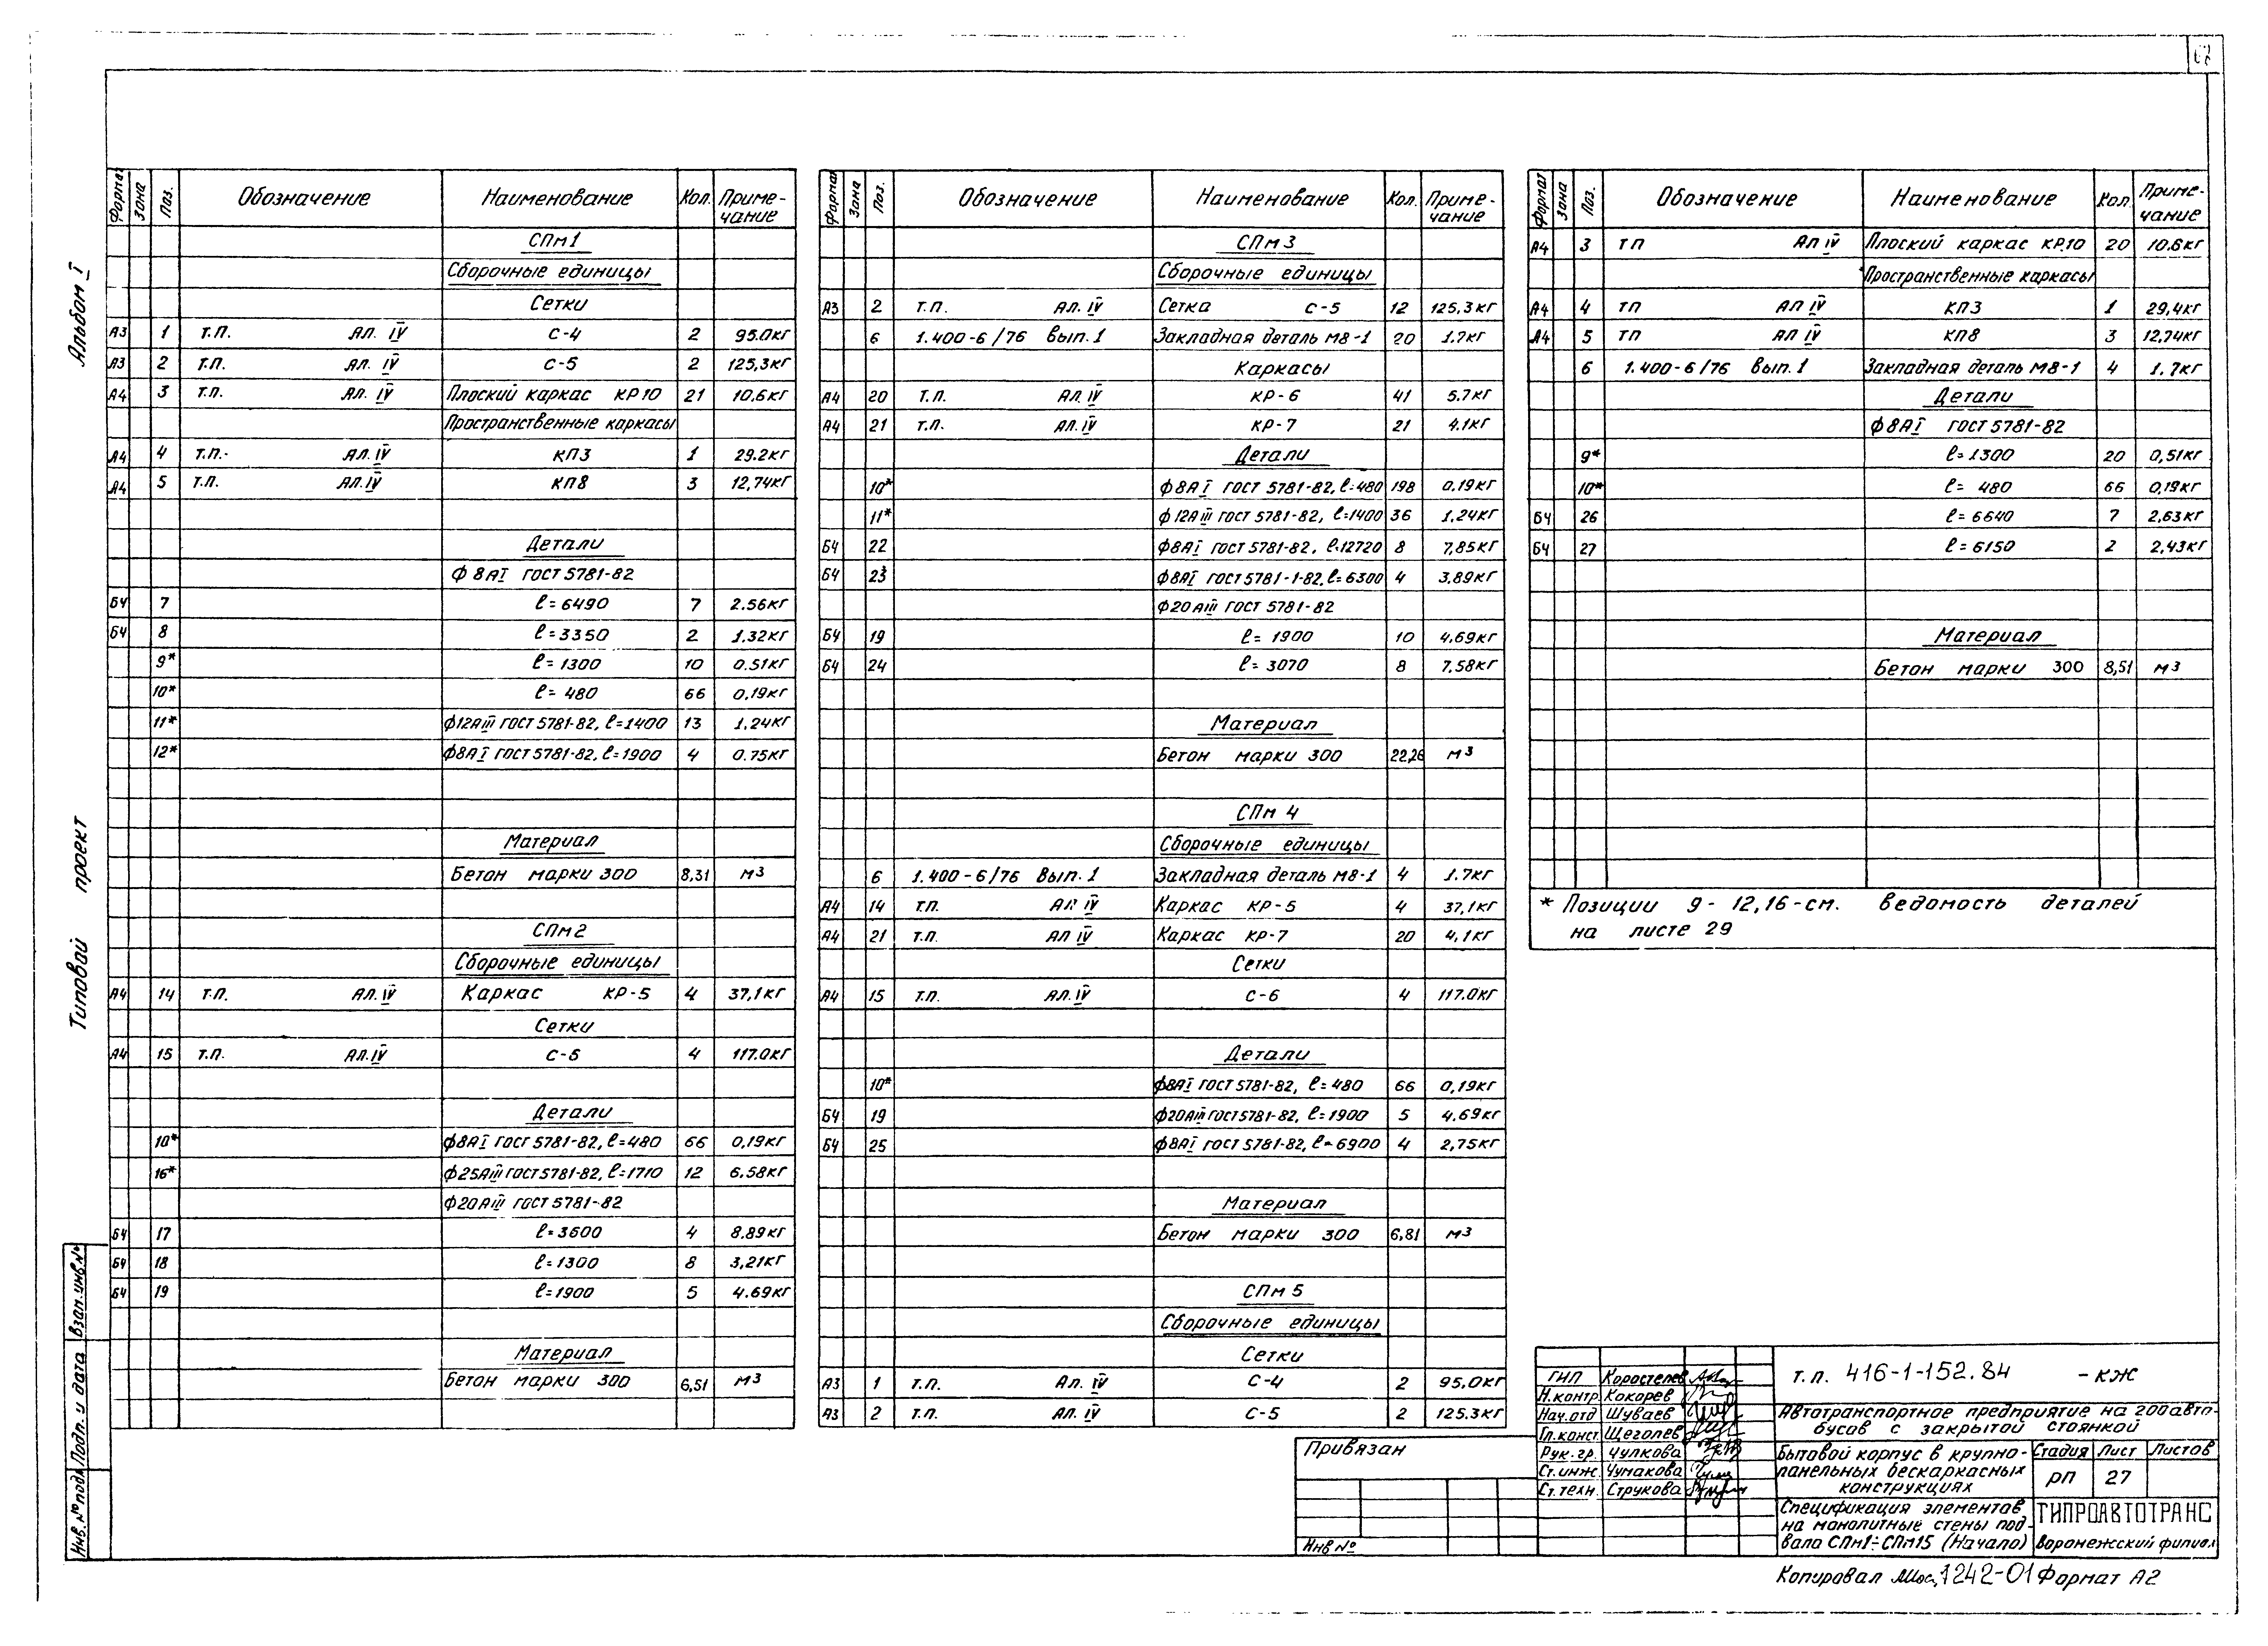 Альбом I
Типовой проект
Формат Зона Поз. Обозначение Наименование Кол. Приме-чание
СПм1
Сборочные единицы
Сетки
А3 1 Т.П. Ал. IV С-4 2 95.0кг
А3 2 Т.П. Ал. IV С-5 2 125,3кг
А4 3 Т.П. Ал. IV Плоский каркас КР10 21 10.6кг
Пространственные каркасы
А4 4 Т.П.- Ал. IV КП3 1 29.2кг
А4 5 Т.П. Ал. IV КП8 3 12,74кг
Детали
Ф8АI ГОСТ 5781-82
БЧ 7 ℓ=6490 7 2.56кг
БЧ 8 ℓ=3350 2 1.32кг
9* ℓ=1300 10 0.51кг
10* ℓ= 480 66 0,19кг
11* Ф12АIII ГОСТ 5781-82, ℓ=1400 13 1,24кг
12* Ф8АI ГОСТ 5781-82, ℓ=1900 4 0.75кг
Материал
Бетон марки 300 8,31 м3
СПм2
Сборочные единицы
А4 14 Т.П. Ал. IV Каркас КР-5 4 37,1кг
Сетки
А4 15 Т.П. Ал. IV С-6 4 117.0кг
Детали
10* Ф8АI ГОСТ 5781-82, ℓ=480 66 0,19кг
16* Ф25АIII ГОСТ 5781-82, ℓ=1710 12 6.58кг
Ф20АIII ГОСТ 5781-82
БЧ 17 ℓ=3600 4 8.89кг
БЧ 18 ℓ=1300 8 3,21кг
БЧ 19 ℓ=1900 5 4.69кг
Материал
Бетон марки 300 6,51 м3
Формат Зона Поз. Обозначение Наименование Кол. Приме-чание
СПм3
Сборочные единицы
А3 2 Т.П. Ал. IV Сетка С-5 12 125.3кг
6 1.400-6/76 Вып.1 Закладная деталь М8-1 20 1.7кг
Каркасы
А4 20 Т.П. Ал. IV КР-6 41 5.7кг
А4 21 Т.П. Ал. IV КР-7 21 4.1кг
Детали
10* Ф8АI ГОСТ 5781-82, ℓ=480 198 0.19кг
11* Ф12АIII ГОСТ 5781-82, ℓ=1400 36 1.24кг
БЧ 22 Ф8АI ГОСТ 5781-82, ℓ=12720 8 7,85кг
БЧ 23 Ф8АI ГОСТ 5781-1-82, ℓ=6300 4 3,89кг
Ф20АIII ГОСТ 5781-82
БЧ 19 ℓ= 1900 10 4.69кг
БЧ 24 ℓ= 3070 8 7.58кг
Материал
Бетон марки 300 22,26 м3
СПм 4
Сборочные единицы
6 1.400-6/76 Вып.1 Закладная деталь М8-1 4 1.7кг
А4 14 Т.П. Ал IV Каркас КР-5 4 37,1кг
А4 21 Т.П. Ал IV Каркас КР-7 20 4,1кг
Сетки
А4 15 Т.П. Ал. IV С-6 4 117.0кг
Детали
10* Ф8АI ГОСТ 5781-82, ℓ=480 66 0,19кг
БЧ 19 Ф20АIII ГОСТ 5781-82, ℓ=1900 5 4.69кг
БЧ 25 Ф8АI ГОСТ 5781-82, ℓ=6900 4 2,75кг
Материал
Бетон марки 300 6,81 м3
СПм 5
Сборочные единицы
Сетки
А3 1 Т.П. Ал. IV С-4 2 95,0кг
А3 2 Т.П. Ал. IV С-5 2 125.3кг
Формат Зона Поз. Обозначение Наименование Кол. Приме-чание
А4 3 ТП Ал IV Плоский каркас КР.10 20 10.6кг
Пространственные каркасы
А4 4 ТП Ал IV КП3 1 29,4кг
А4 5 ТП Ал IV КП8 3 12,74кг
6 1.400-6/76 Вып.1 Закладная деталь М8-1 4 1.7кг
Детали
Ф8АI ГОСТ 5781-82
9* ℓ=1300 20 0,51кг
10* ℓ= 480 66 0,19кг
БЧ 26 ℓ=6640 7 2,63кг
БЧ 27 ℓ=6150 2 2,43кг
Материал
Бетон марки 300 8,51 м3
* Позиции 9-12,16-см. ведомость деталей
на листе 29
Инв.№подл. Подп. и дата Взам.инв.№
Привязан
Инв №
ГИП Коростелев
Н.контр. Кокорев
Нач.отд Шуваев
Гл.конст. Щеголев
Рук.гр. Чулкова
Ст.инж. Чумакова
Ст.техн. Струкова
т.п. 416-1-152.84 -КЖ
Автотранспортное предприятие на 200 авто-
бусов с закрытой стоянкой
Бытовой корпус в крупно-
панельных бескаркасных
конструкциях
Стадия Лист Листов
РП 27
Спецификация элементов
на монолитные стены под-
вала СПм1÷СПм15 (Начало)
ГИПРОАВТОТРАНС
Воронежский филиал
Копировал 1242-01 Формат А2